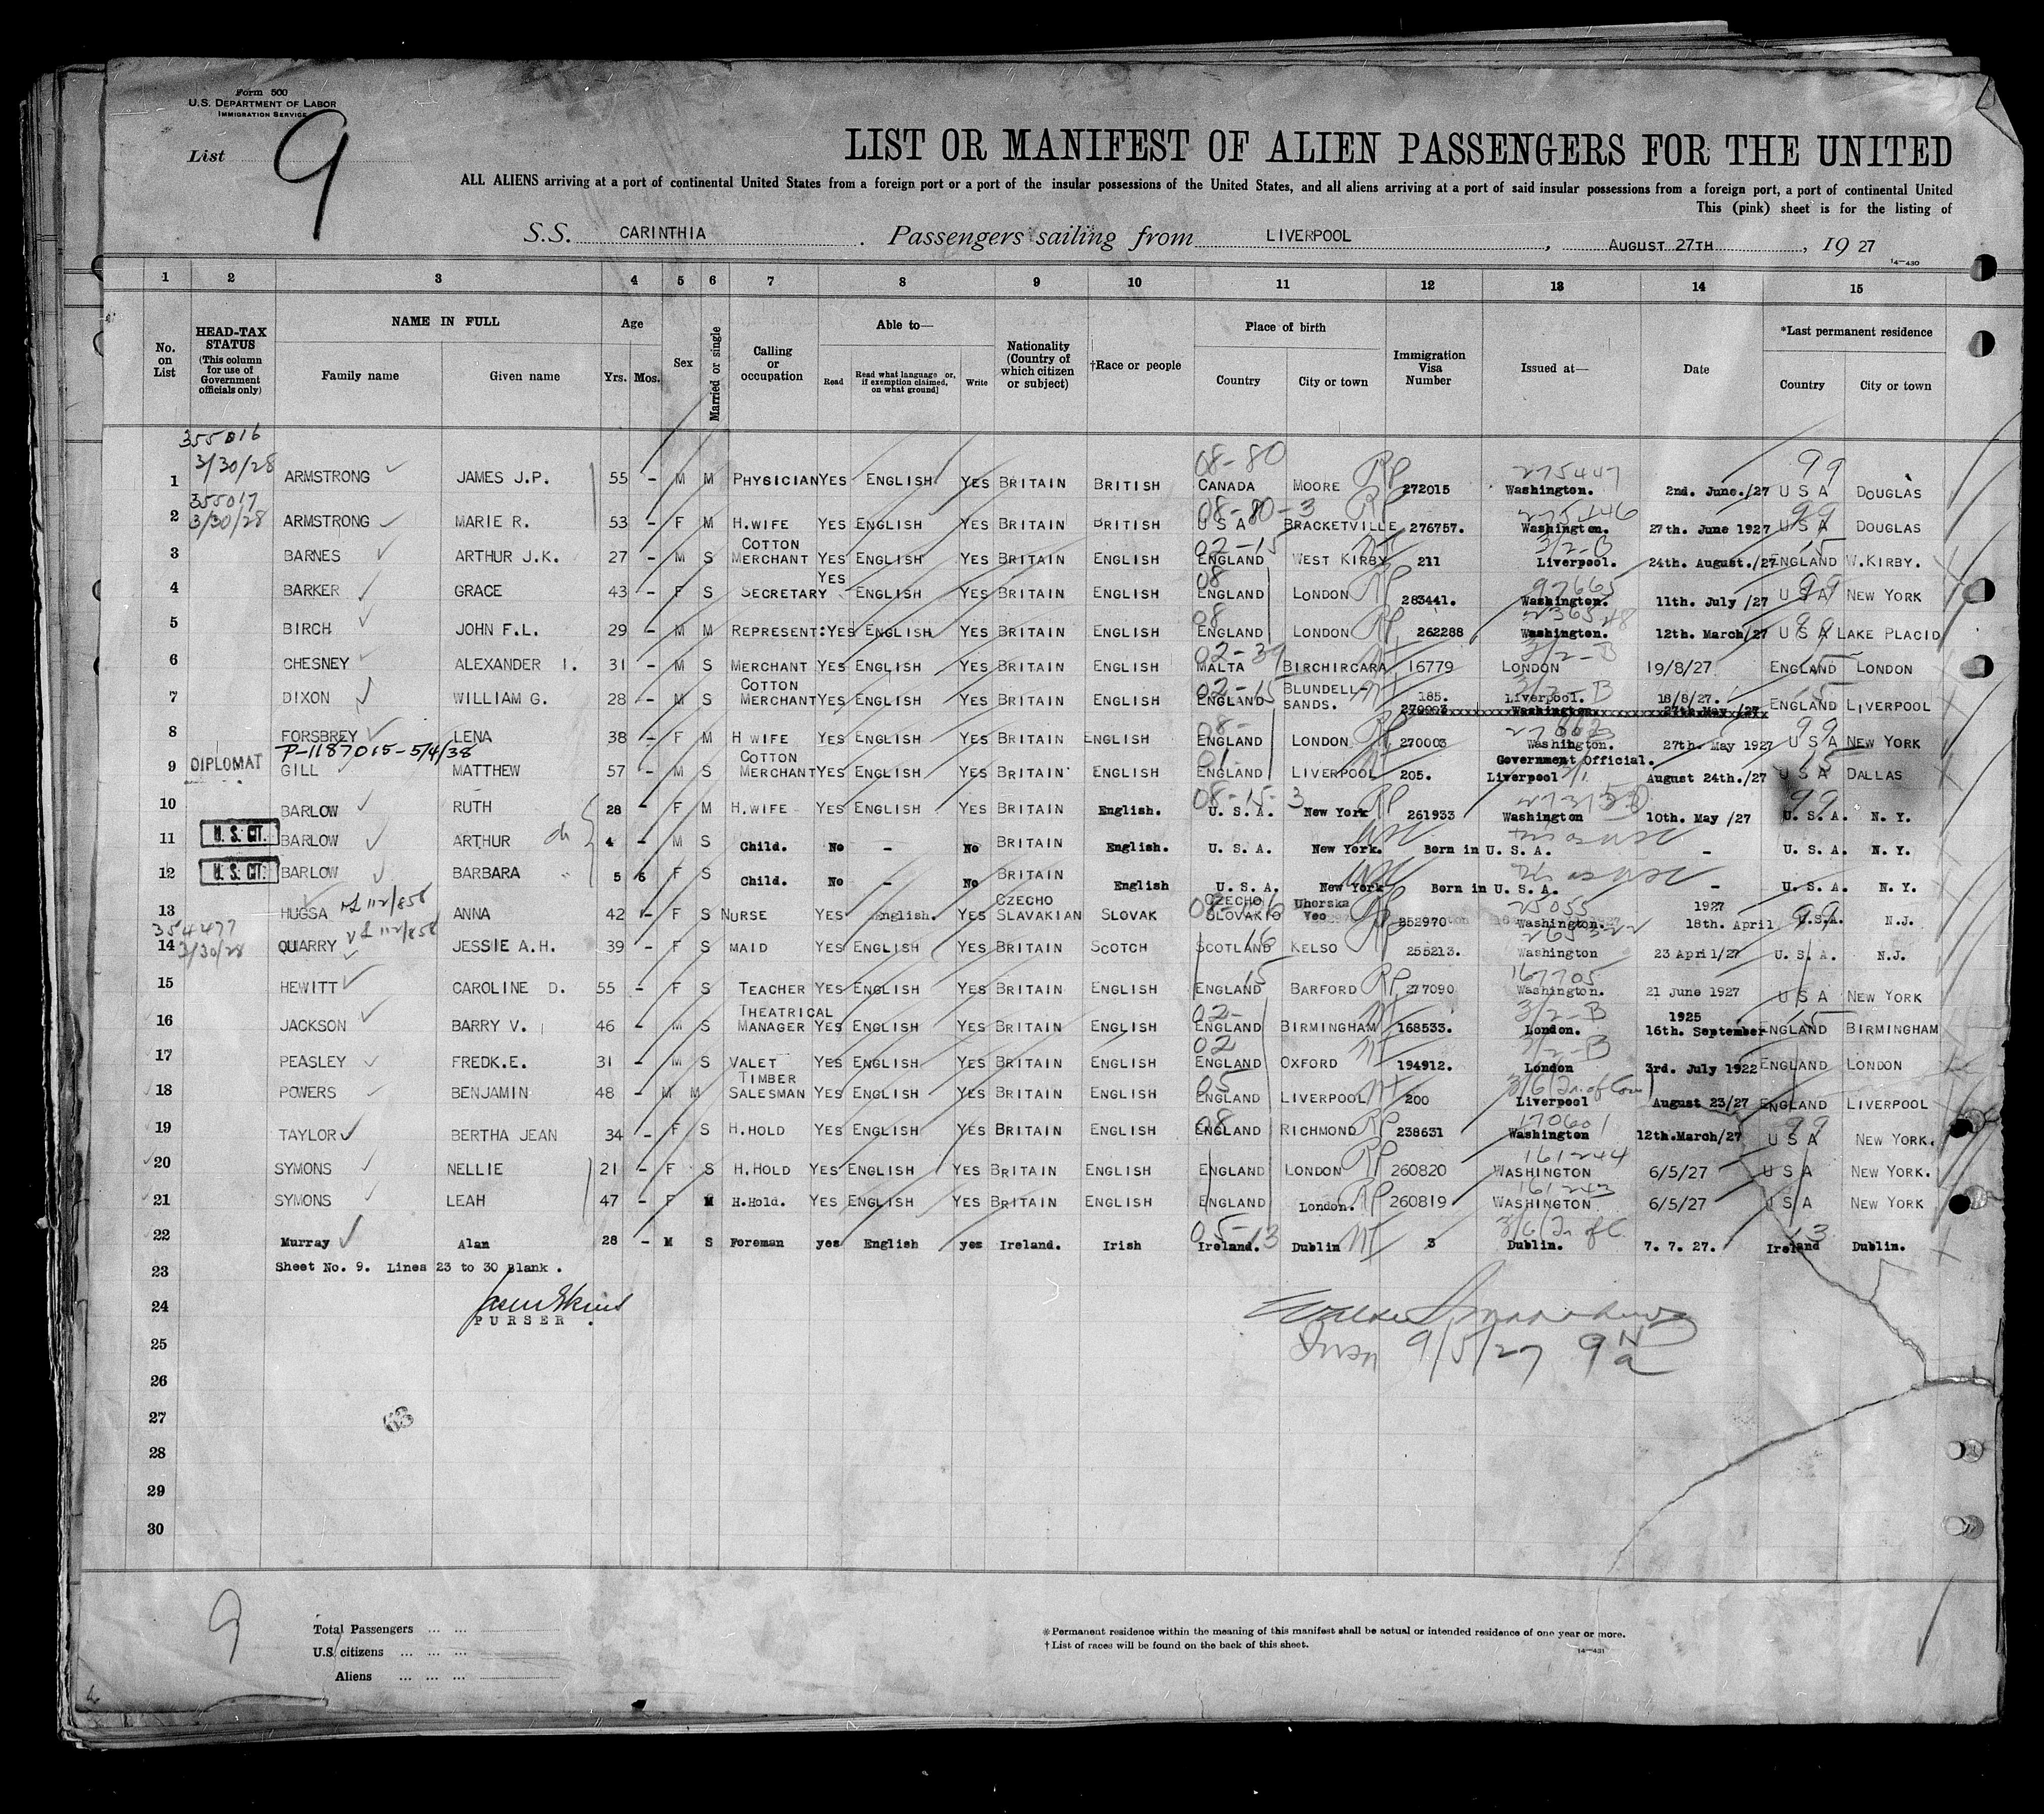 Form 500
U.S. DEPARTMENT OF LABOR
IMMIGRATION SERVICE
List 9
LIST OR MANIFEST OF ALIEN PASSENGERS FOR THE UNITED
ALL ALIENS arriving at a port of continental United States from a foreign port or a port of the insular possessions of the United States, and all aliens arriving at a port of said insular possessions from a foreign port, a port of continental United
This (pink) sheet is for the listing of
S.S. CARINTHIA. Passengers sailing from LIVERPOOL, AUGUST 27TH, 1927
14-430
1 2 3 4 5 6 7 8 9 10 11 12 13 14 15
No. on List HEAD-TAX STATUS (This column for use of Government officials only) NAME IN FULL Family name Given name Age Yrs. Mos. Sex Married or single Calling or occupation Able to— Read Read what language [or, if exemption claimed, on what ground] Write Nationality (Country of which citizen or subject) †Race or people Place of birth Country City or town Immigration Visa Number Issued at— Date *Last permanent residence Country City or town
355016
3/30/28 08-80 RP 275447 99
1 ARMSTRONG JAMES J.P. 55 - M M PHYSICIAN YES ENGLISH YES BRITAIN BRITISH CANADA MOORE 272015 Washington. 2nd. June./27 U S A DOUGLAS
355017
3/30/28 08-80-3 RP 275446 99
2 ARMSTRONG MARIE R. 53 - F M H.WIFE YES ENGLISH YES BRITAIN BRITISH U S A BRACKETVILLE 276757. Washington. 27th. June 1927 U S A DOUGLAS
02-15 3/2-B 15
3 BARNES ARTHUR J.K. 27 - M S COTTON MERCHANT YES ENGLISH YES BRITAIN ENGLISH ENGLAND WEST KIRBY 211 Liverpool. 24th. August./27 ENGLAND W.KIRBY.
08 RP 97665 99
4 BARKER GRACE 43 - F S SECRETARY YES ENGLISH YES BRITAIN ENGLISH ENGLAND LONDON 283441. Washington. 11th. July /27 U S A NEW YORK
08 RP 99
5 BIRCH JOHN F.L. 29 - M M REPRESENT: YES ENGLISH YES BRITAIN ENGLISH ENGLAND LONDON 262288 Washington. 12th. March/27 U S A LAKE PLACID
02-39 3/2-B 15
6 CHESNEY ALEXANDER I. 31 - M S MERCHANT YES ENGLISH YES BRITAIN ENGLISH MALTA BIRCHIRCARA 16779 LONDON 19/8/27. ENGLAND LONDON
02-15 3/2-B 15
7 DIXON WILLIAM G. 28 - M S COTTON MERCHANT YES ENGLISH YES BRITAIN ENGLISH ENGLAND BLUNDELL-SANDS. 185. Liverpool. 18/8/27. ENGLAND LIVERPOOL
270003 Washington 27th May /27
08- RP 99
8 FORSBREY LENA 38 - F M H WIFE YES ENGLISH YES BRITAIN ENGLISH ENGLAND LONDON 270003 Washington. 27th. May 1927 U S A NEW YORK
DIPLOMAT P-1187015-5/4/38 01- Government Official. 15
9 GILL MATTHEW 57 - M S COTTON MERCHANT YES ENGLISH YES BRITAIN ENGLISH ENGLAND LIVERPOOL 205. Liverpool August 24th./27 U S A DALLAS
08-15-3 RP 99
10 BARLOW RUTH 28 - F M H.WIFE YES ENGLISH YES BRITAIN English. U. S. A. New York 261933 Washington 10th. May /27 U. S. A. N. Y.
11 U. S. CIT. BARLOW ARTHUR ch 4 - M S Child. No - No BRITAIN English. U. S. A. New York. Born in U. S. A. - U. S. A. N. Y.
12 U. S. CIT. BARLOW BARBARA 5 6 F S Child. No - No BRITAIN English U. S. A. New York Born in U. S. A. - U. S. A. N. Y.
13 HUGSA 112/858 ANNA 42 - F S NURSE YES English. YES CZECHO SLAVAKIAN SLOVAK CZECHO SLOVAKIO Uhorska Veo RP 252970 25055 Washington. 18th. April 1927 99 U.S.A. N.J.
354477
3/30/28
14 QUARRY 112/858 JESSIE A.H. 39 - F S MAID YES ENGLISH YES BRITAIN SCOTCH SCOTLAND 16 KELSO 255213. Washington 23 April/27 U. S. A. N.J.
15 HEWITT CAROLINE D. 55 - F S TEACHER YES ENGLISH YES BRITAIN ENGLISH ENGLAND 15 BARFORD RP 277090 167705 Washington. 21 June 1927 U S A NEW YORK
02- 3/2-B 15
16 JACKSON BARRY V. 46 - M S THEATRICAL MANAGER YES ENGLISH YES BRITAIN ENGLISH ENGLAND BIRMINGHAM 168533. London. 16th. September 1925 ENGLAND BIRMINGHAM
02 3/2-B
17 PEASLEY FREDK.E. 31 - M S VALET YES ENGLISH YES BRITAIN ENGLISH ENGLAND OXFORD 194912. London 3rd. July 1922 ENGLAND LONDON
05
18 POWERS BENJAMIN 48 - M M TIMBER SALESMAN YES ENGLISH YES BRITAIN ENGLISH ENGLAND LIVERPOOL 200 Liverpool August 23/27 ENGLAND LIVERPOOL
08 RP 170601 99
19 TAYLOR BERTHA JEAN 34 - F S H.HOLD YES ENGLISH YES BRITAIN ENGLISH ENGLAND RICHMOND 238631 Washington 12th.March/27 U S A NEW YORK.
RP 161244
20 SYMONS NELLIE 21 - F S H.HOLD YES ENGLISH YES BRITAIN ENGLISH ENGLAND LONDON 260820 WASHINGTON 6/5/27 U S A NEW YORK.
RP 161243
21 SYMONS LEAH 47 - F M H.Hold. YES ENGLISH YES BRITAIN ENGLISH ENGLAND London. 260819 WASHINGTON 6/5/27 U S A NEW YORK
05-13 13
22 Murray Alan 28 - M S Foreman yes English yes Ireland. Irish Ireland. Dublin 3 Dublin. 7. 7. 27. Ireland Dublin.
23 Sheet No. 9. Lines 23 to 30 Blank.
24 PURSER.
25 9/5/27
26
27
28
29
30
9
Total Passengers ... ...
U.S. citizens ... ... ...
Aliens ... ... ...
*Permanent residence within the meaning of this manifest shall be actual or intended residence of one year or more.
†List of races will be found on the back of this sheet.
14-431